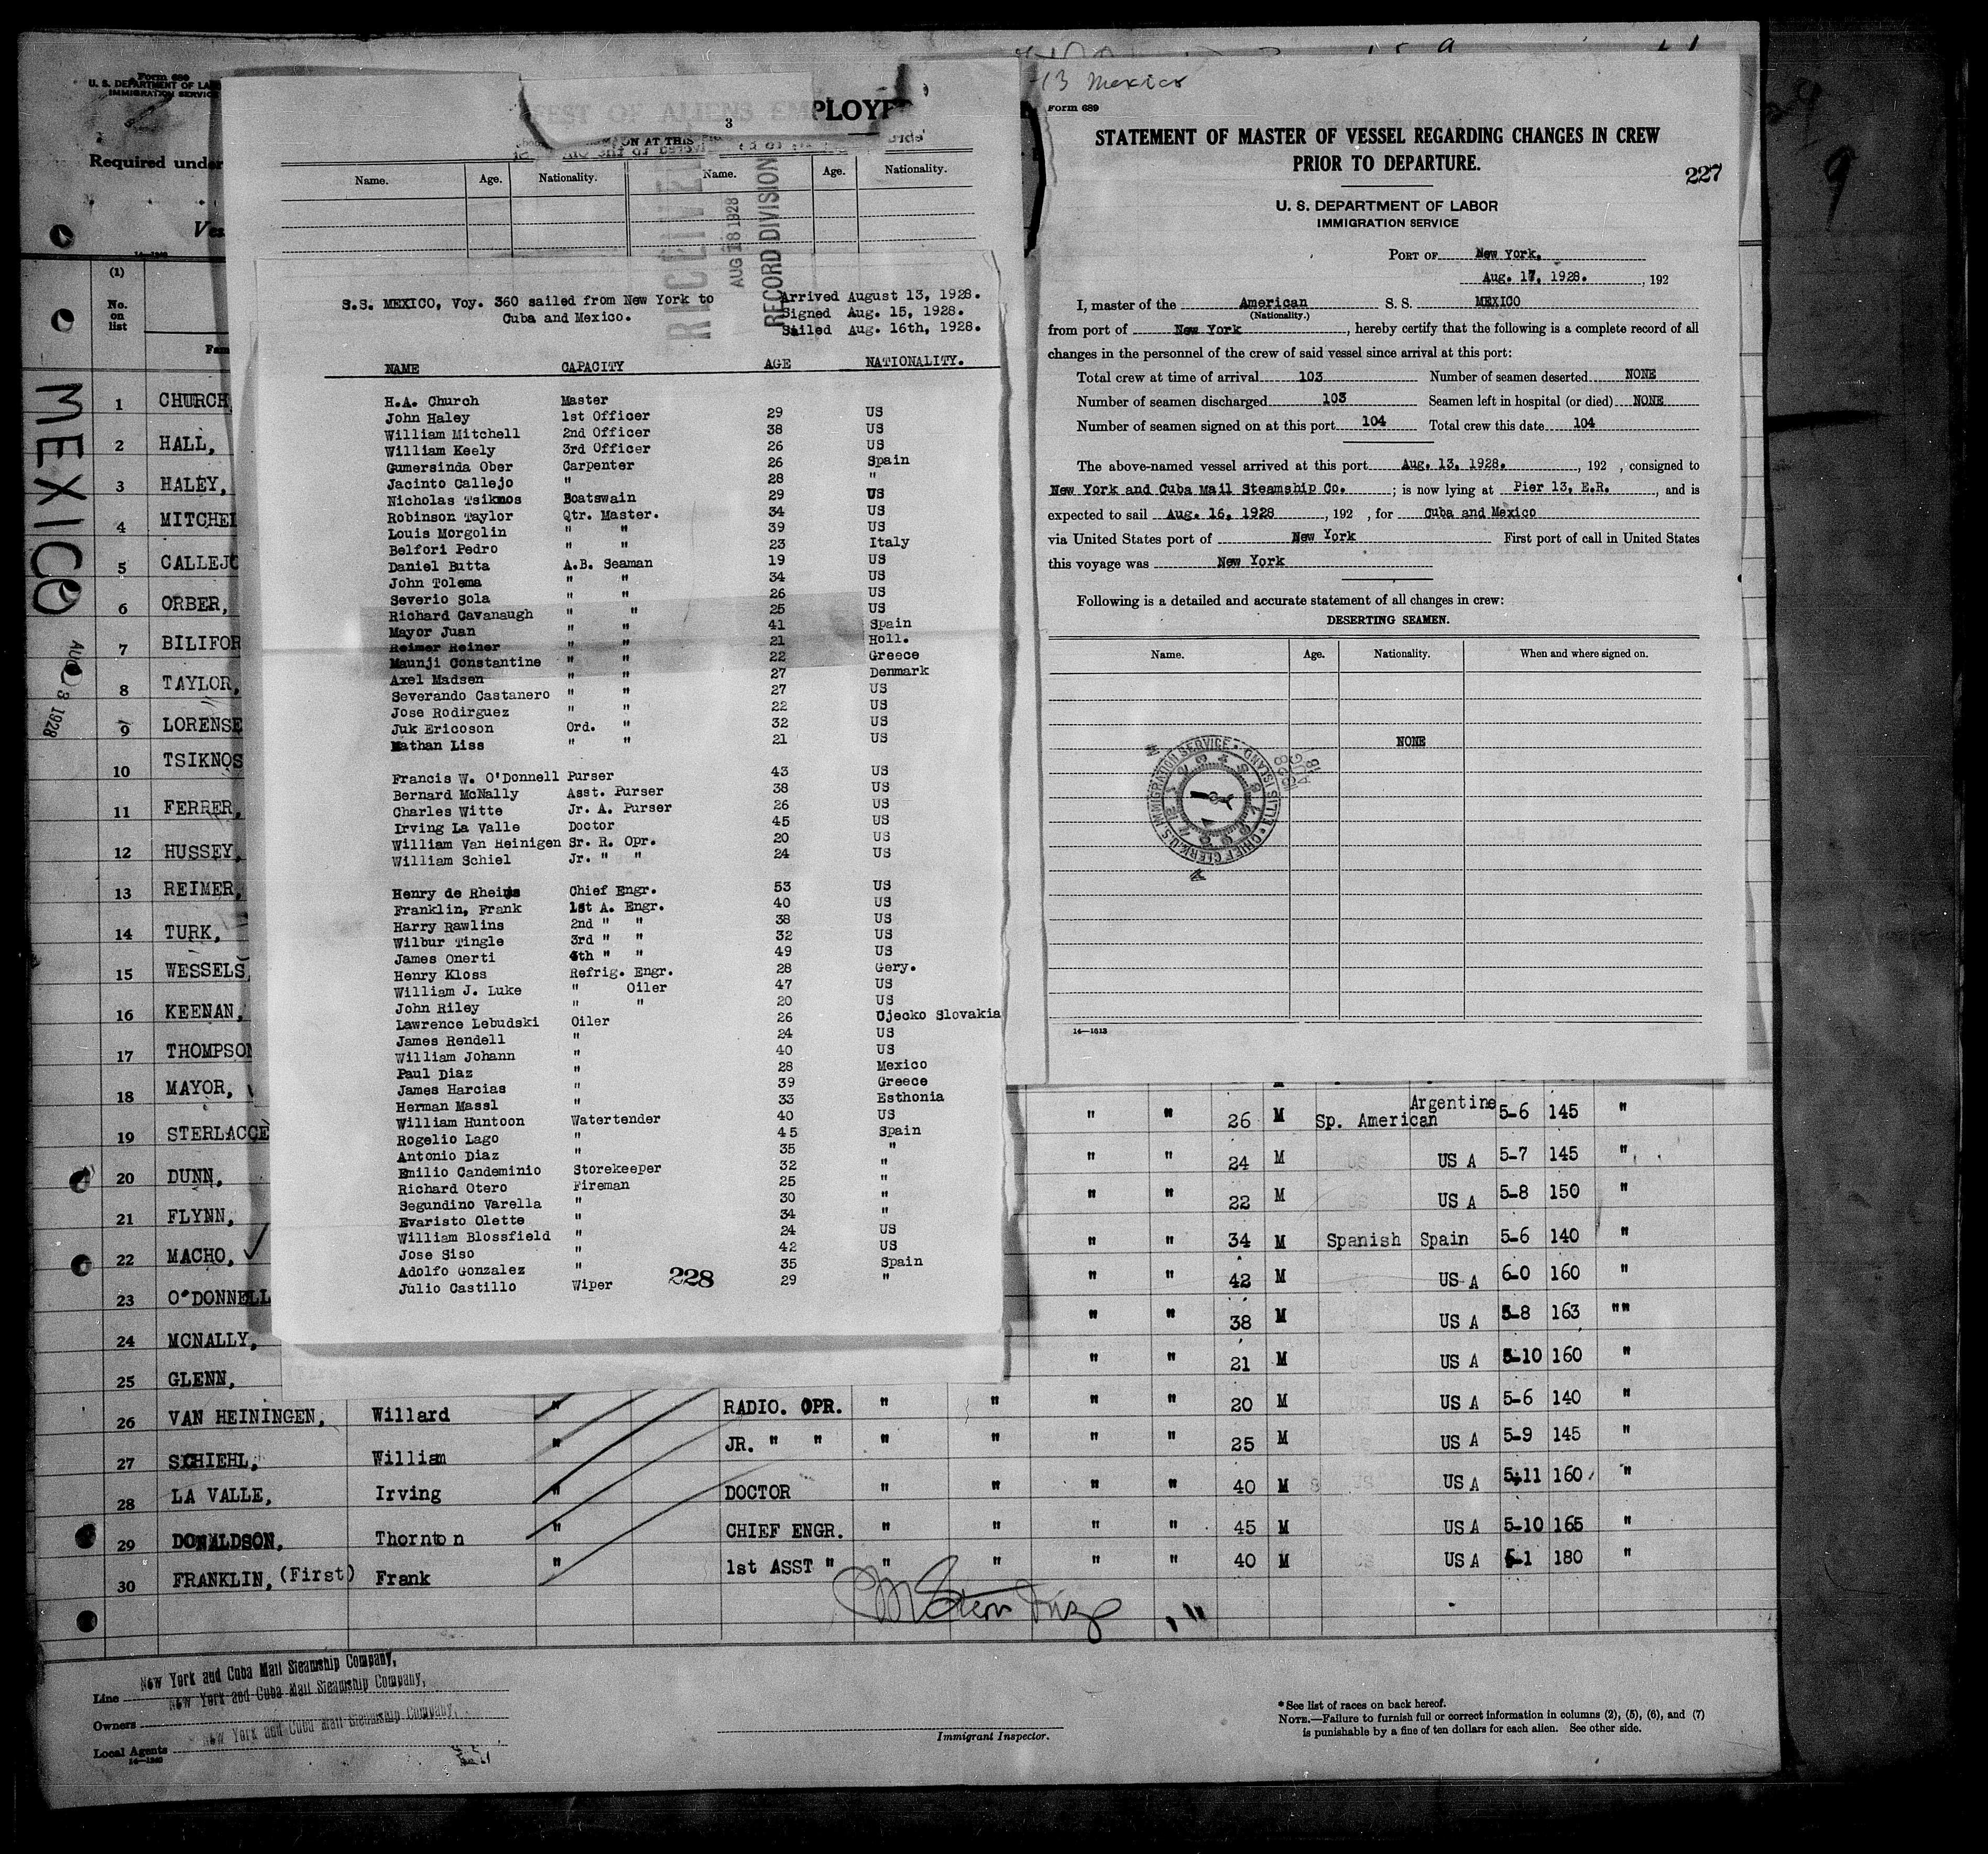 Form 689
U. S. DEPARTMENT OF LA
IMMIGRATION SERVICE
Required under
Ves
14—1240
(1)
No.
on
list
Fam
MEXICO
AUG 3 1928
1 CHURCH,
2 HALL,
3 HALEY,
4 MITCHEL
5 CALLEJO
6 ORBER,
7 BILIFOR
8 TAYLOR,
9 LORENSE
10 TSIKNOS
11 FERRER,
12 HUSSEY,
13 REIMER,
14 TURK,
15 WESSELS,
16 KEENAN,
17 THOMPSON
18 MAYOR,
19 STERLACCE
20 DUNN,
21 FLYNN,
22 MACHO,
23 O'DONNELL
24 MCNALLY,
25 GLENN,
FEST OF ALIENS EM PLOYE
3
ON AT THIS
Name. Age. Nationality. Name. Age. Nationality.
RECEIVED
AUG 18 1928
RECORD DIVISION
S.S. MEXICO, Voy. 360 sailed from New York to
Cuba and Mexico.
Arrived August 13, 1928.
Signed Aug. 15, 1928.
Sailed Aug. 16th, 1928.
NAME CAPACITY AGE NATIONALITY.
H.A. Church Master
John Haley 1st Officer 29 US
William Mitchell 2nd Officer 38 US
William Keely 3rd Officer 26 US
Gumersinda Ober Carpenter 26 Spain
Jacinto Callejo " 28 "
Nicholas Tsiknos Boatswain 29 US
Robinson Taylor Qtr. Master. 34 US
Louis Morgolin " " 39 US
Belfori Pedro " " 23 Italy
Daniel Butta A.B. Seaman 19 US
John Tolema " " 34 US
Severio Sola " " 26 US
Richard Cavanaugh " " 25 US
Mayor Juan " " 41 Spain
Reimer Reiner " " 21 Holl.
Maunji Constantine " " 22 Greece
Axel Madsen " " 27 Denmark
Severando Castanero " " 27 US
Jose Rodirguez " " 22 US
Juk Ericoson Ord. " 32 US
Nathan Liss " " 21 US
Francis W. O'Donnell Purser 43 US
Bernard McNally Asst. Purser 38 US
Charles Witte Jr. A. Purser 26 US
Irving La Valle Doctor 45 US
William Van Heinigen Sr. R. Opr. 20 US
William Schiel Jr. " " 24 US
Henry de Rheims Chief Engr. 53 US
Franklin, Frank 1st A. Engr. 40 US
Harry Rawlins 2nd " " 38 US
Wilbur Tingle 3rd " " 32 US
James Onerti 4th " " 49 US
Henry Kloss Refrig. Engr. 28 Gery.
William J. Luke " Oiler 47 US
John Riley " " 20 US
Lawrence Lebudski Oiler 26 Ujecko Slovakia
James Rendell " 24 US
William Johann " 40 US
Paul Diaz " 28 Mexico
James Harcias " 39 Greece
Herman Massl " 33 Esthonia
William Huntoon Watertender 40 US
Rogelio Lago " 45 Spain
Antonio Diaz " 35 "
Emilio Candeminio Storekeeper 32 "
Richard Otero Fireman 25 "
Segundino Varella " 30 "
Evaristo Olette " 34 "
William Blossfield " 24 US
Jose Siso " 42 US
Adolfo Gonzalez " 35 Spain
Julio Castillo Wiper 29 "
228
13 Mexico
Form 689
STATEMENT OF MASTER OF VESSEL REGARDING CHANGES IN CREW
PRIOR TO DEPARTURE.
227
U. S. DEPARTMENT OF LABOR
IMMIGRATION SERVICE
PORT OF New York,
Aug. 17, 1928. , 192
I, master of the American S. S. MEXICO
(Nationality.)
from port of New York , hereby certify that the following is a complete record of all
changes in the personnel of the crew of said vessel since arrival at this port:
Total crew at time of arrival 103 Number of seamen deserted NONE
Number of seamen discharged 103 Seamen left in hospital (or died) NONE
Number of seamen signed on at this port 104 Total crew this date 104
The above-named vessel arrived at this port Aug. 13, 1928. , 192 , consigned to
New York and Cuba Mail Steamship Co. ; is now lying at Pier 13, E.R. , and is
expected to sail Aug. 16, 1928 , 192 , for Cuba and Mexico
via United States port of New York First port of call in United States
this voyage was New York
Following is a detailed and accurate statement of all changes in crew:
DESERTING SEAMEN.
Name. Age. Nationality. When and where signed on.
NONE
CHIEF CLERK, U.S. IMMIGRATION SERVICE · ELLIS ISLAND
18 AUG 1928
14—1613
9
" " 26 M Sp. American Argentine 5-6 145 "
" " 24 M US A 5-7 145 "
" " 22 M US A 5-8 150 "
" " 34 M Spanish Spain 5-6 140 "
" " 42 M US A 6-0 160 "
" " 38 M US A 5-8 163 ""
" " 21 M US A 5-10 160 "
26 VAN HEININGEN, Willard " RADIO. OPR. " " " " 20 M US A 5-6 140 "
27 SCHIEHL, William " JR. " " " " " " 25 M US A 5-9 145 "
28 LA VALLE, Irving " DOCTOR " " " " 40 M US A 5-11 160 "
29 DONALDSON, Thornton " CHIEF ENGR. " " " " 45 M US A 5-10 165 "
30 FRANKLIN, (First) Frank " 1st ASST " " " " " 40 M US A 5-1 180 "
Line New York and Cuba Mail Steamship Company,
Owners New York and Cuba Mail Steamship Company,
Local Agents New York and Cuba Mail Steamship Company,
14—1240
Immigrant Inspector.
* See list of races on back hereof.
NOTE.—Failure to furnish full or correct information in columns (2), (5), (6), and (7)
is punishable by a fine of ten dollars for each alien. See other side.